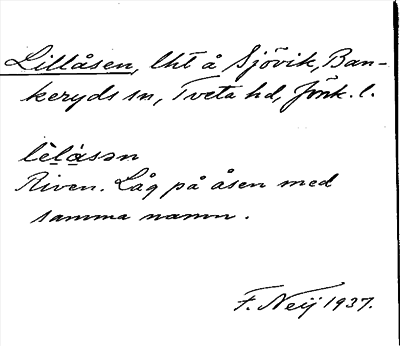 Lillåsen, lht å Sjövik, Ban-
keryds sn, Tveta hd, Jönk. l.
lìlåsən
Riven. Låg på åsen med
samma namn.
F. Neij 1937.